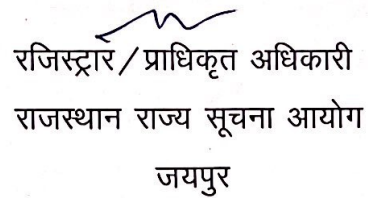 रजिस्ट्रार/प्राधिकृत अधिकारी
राजस्थान राज्य सूचना आयोग
जयपुर